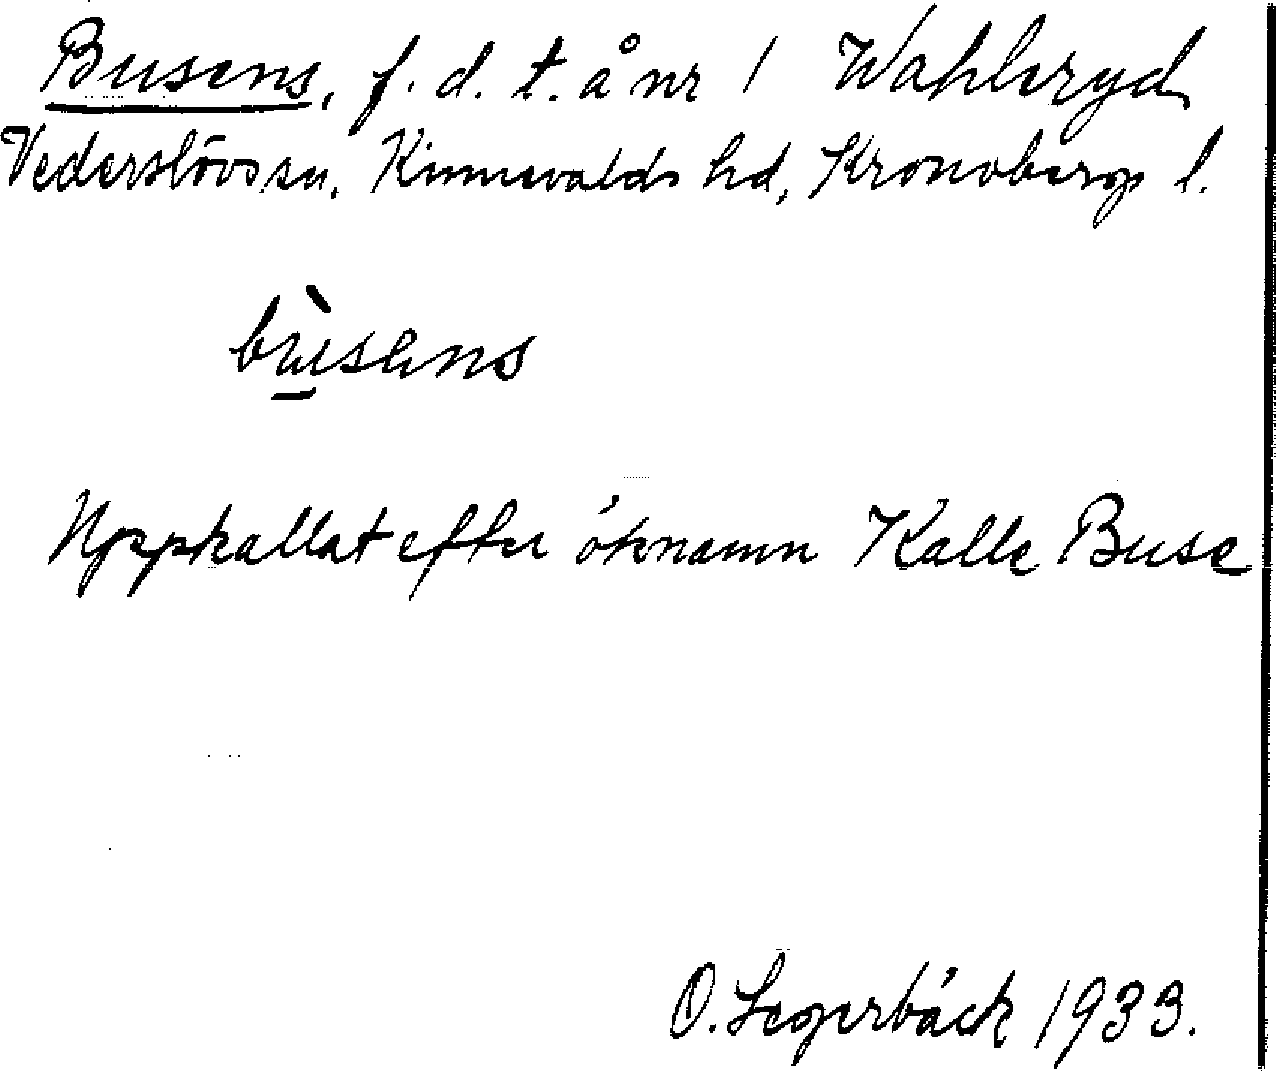 Busens, f.d.t. å nr 1 Wahleryd
Vederslövs sn, Kinnevalds hd, Kronobergs l.
bùsens
Uppkallat efter öknamn Kalle Buse
O. Segerbäck 1933.